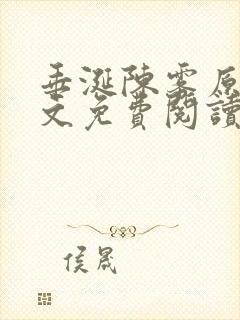 垂涎陳雾原
文免費閱讀
侯晟